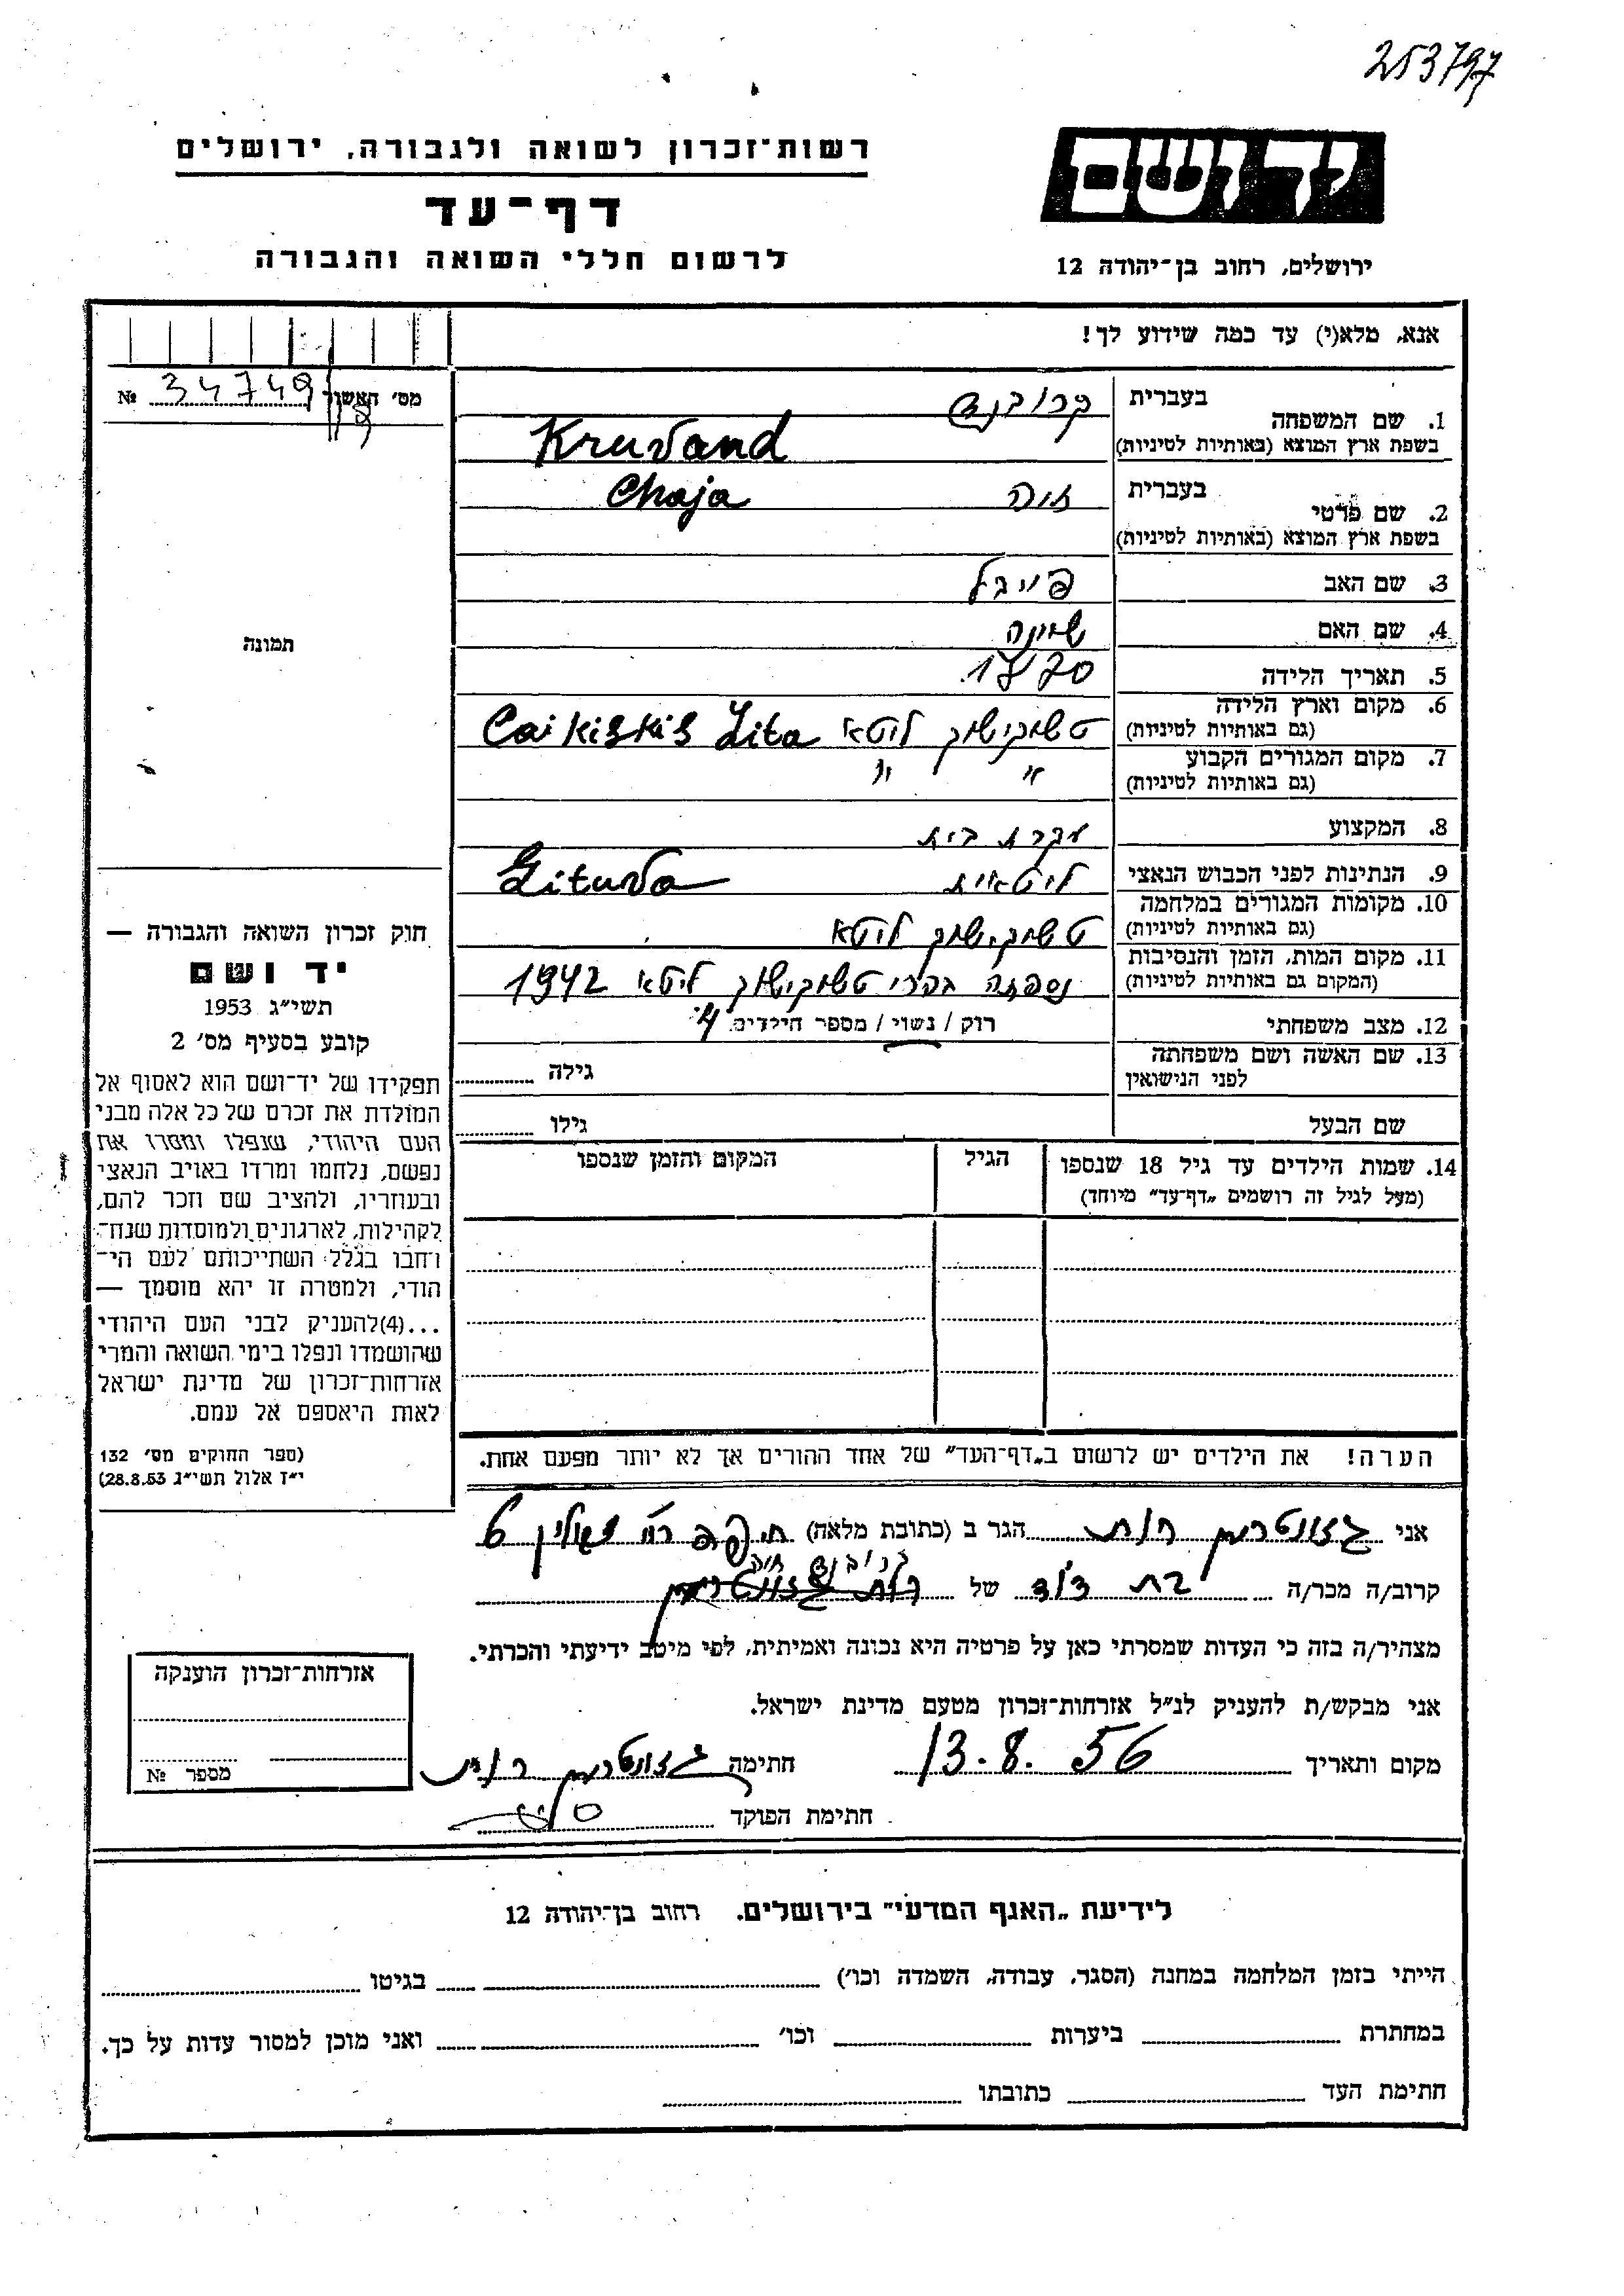 253797
יד ושם
רשות־זכרון לשואה ולגבורה, ירושלים
דף־עד
לרשום חללי השואה והגבורה
ירושלים, רחוב בן־יהודה 12
אנא, מלא(י) עד כמה שידוע לך!
מס׳ האשור 34749 №
1. שם המשפחה בעברית קרובנד
בשפת ארץ המוצא (באותיות לטיניות) Kruvand
2. שם פרטי בעברית חיה Chaja
בשפת ארץ המוצא (באותיות לטיניות)
3. שם האב פייבל
4. שם האם
5. תאריך הלידה 1870
6. מקום וארץ הלידה ליטא Caikiskis Lita
(גם באותיות לטיניות)
7. מקום המגורים הקבוע " "
(גם באותיות לטיניות)
8. המקצוע עקרת בית
9. הנתינות לפני הכבוש הנאצי ליטאית Lituva
10. מקומות המגורים במלחמה ליטא
(גם באותיות לטיניות)
11. מקום המות, הזמן והנסיבות נספתה ליטא 1942
(המקום גם באותיות לטיניות)
12. מצב משפחתי רוק / נשוי / מספר הילדים 4
13. שם האשה ושם משפחתה גילה
לפני הנישואין
שם הבעל גילו
14. שמות הילדים עד גיל 18 שנספו הגיל המקום והזמן שנספו
(מעל לגיל זה רושמים „דף־עד״ מיוחד)
הערה! את הילדים יש לרשום ב„דף־העד״ של אחד ההורים אך לא יותר מפעם אחת.
תמונה
חוק זכרון השואה והגבורה —
יד ושם
תשי״ג 1953
קובע בסעיף מס׳ 2
תפקידו של יד־ושם הוא לאסוף אל
המולדת את זכרם של כל אלה מבני
העם היהודי, שנפלו ומסרו את
נפשם, נלחמו ומרדו באויב הנאצי
ובעוזריו, ולהציב שם וזכר להם,
לקהילות, לארגונים ולמוסדות שנח־
רבו בגלל השתייכותם לעם הי־
הודי, ולמטרה זו יהא מוסמך —
...(4)להעניק לבני העם היהודי
שהושמדו ונפלו בימי השואה והמרי
אזרחות־זכרון של מדינת ישראל
לאות היאספם אל עמם.
(ספר החוקים מס׳ 132
י״ז אלול תשי״ג 28.8.53)
אני רות הגר ב (כתובת מלאה) חיפה רח׳ 6
קרוב/ה מכר/ה בת דוד של קרובנד חיה
מצהיר/ה בזה כי העדות שמסרתי כאן על פרטיה היא נכונה ואמיתית, לפי מיטב ידיעתי והכרתי.
אני מבקש/ת להעניק לנ״ל אזרחות־זכרון מטעם מדינת ישראל.
מקום ותאריך 13.8.56 חתימה רות
חתימת הפוקד
אזרחות־זכרון הוענקה
מספר №
לידיעת „האגף המדעי״ בירושלים. רחוב בן־יהודה 12
הייתי בזמן המלחמה במחנה (הסגר, עבודה, השמדה וכו׳) בגיטו
במחתרת ביערות וכו׳ ואני מוכן למסור עדות על כך.
חתימת העד כתובתו